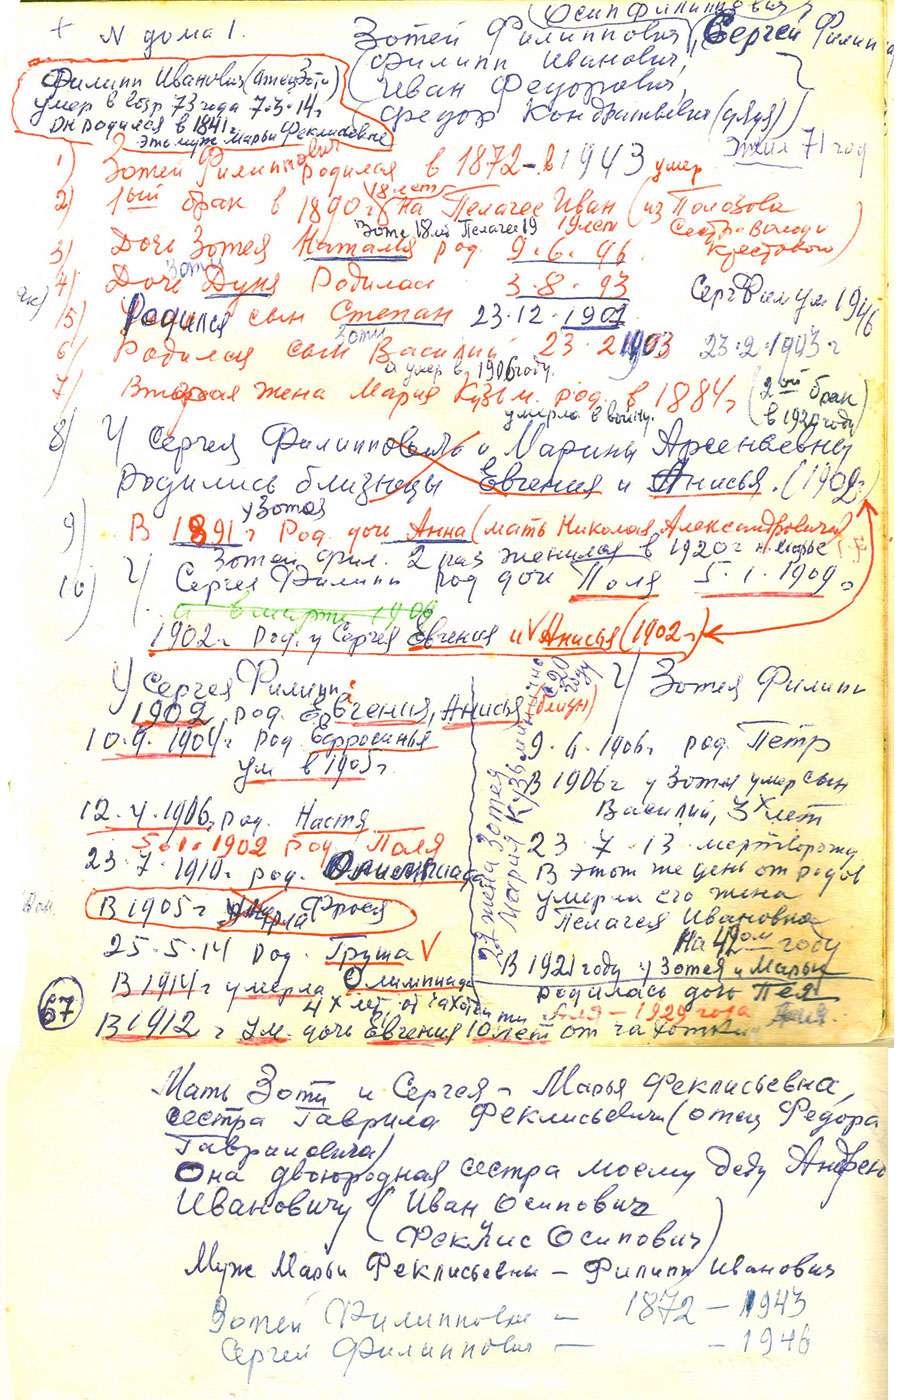 Осип Филиппович
+ N дома 1.
Зотей Филиппович, Сергей Филипп
(Филипп Иванович,
Иван Федорович,
Федор Кондратьевич (дядя)
Филипп Иванович (отец Зоти)
умер в возр 73 года 7.3.14 г
Он родился в 1841 г.
Это муж Марьи Феклисьевне
Зжил 71 год
1) Зотей Филиппович родился в 1872 - в 1943 умер
18 лет
2) 1ый брак в 1890 г (на Пелагее Иван (из Полозова
Зоте 18 лет Пелагее 19
19 лет
Сестра Володи
Крестового)
3) Дочь Зотея Наталья род. 9.6.96
Зоти
4) Дочь Дуня Родилась 3.8.93
Серг Фил ум 1946
5) Родился сын Степан 23.12.1901
Зоти
6) Родился сын Василий 23.2.1903 23.2.1903 г
а умер в 1906 году.
7) Вторая жена Мария Кузьм. род. в 1884 г
(2ой брак
в 1920 году)
умерла в войну.
8) У Сергея Филипповича и Марины Арсеньевны
родились близнецы Евгения и Анисья. (1902 г)
у Зотея
9) В 1891 г Род. дочь Анна (мать Николая Александровича)
Зотей фил. 2 раз женился в 1920 г н. Марье
10) У Сергея Филипп род дочь Поля 5.1.1909 г
а в марте 1906
1902 г род. у Сергея Евгения и Анисья (1902 г)
У Сергея Филипп:
1902 род. Евгения, Анисья (близн)
10.9.1904 г род Ефросинья
ум в 1905 г.
12.4.1906 род. Настя
5.1.1902 род Поля
23.7.1910 г. род. Олимпиада
В 1905 г умерла Фрося
25.5.14 род. Груша V
В 1914 г умерла Олимпиада
4х лет, от чахотки
67
В 1912 г ум. дочь Евгения 10 лет от чахотки
2я жена Зотея
Мария Кузьминична
в 20 году
У Зотея Филипп
9.6.1906 г. род. Петр
В 1906 г у Зотея умер сын
Василий, 3х лет
23.7.13 мертворожд
В этот же день от родов
умерла его жена
Пелагея Ивановна
На 42ом году
В 1921 году у Зотея и Марьи
родилась дочь Пея
Аля - 1929 года
Мать Зоти и Сергея - Марья Феклисьевна,
сестра Гаврила Феклисьевича (отец Федора
Гавриловича)
Она двоюродная сестра моему деду Андрею
Ивановичу (Иван Осипович
Феклис Осипович)
Муж Марьи Феклисьевны - Филипп Иванович
Зотей Филиппович - 1872 - 1943
Сергей Филиппович - - 1946